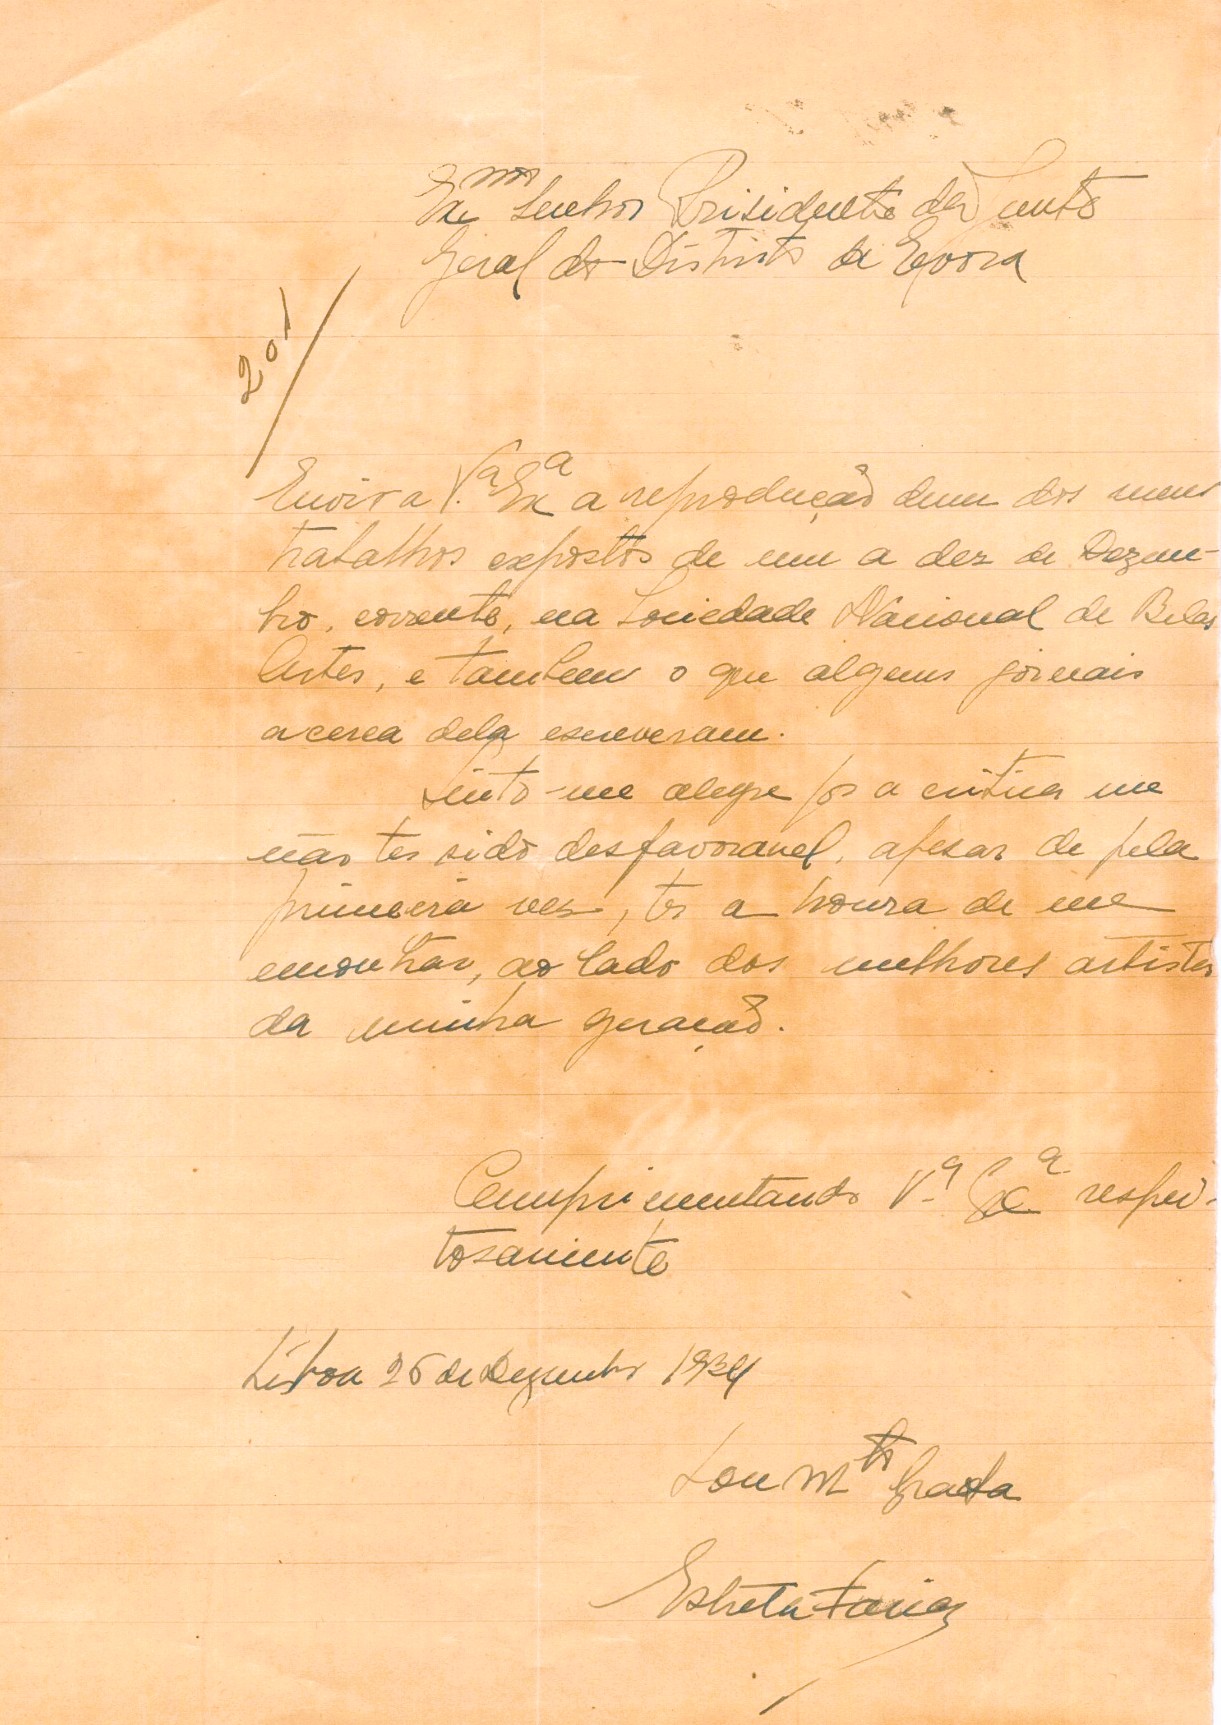 Exmo Senhor Prisidente da Junta
Geral do Distrito de Evora
201
Envio a V.ª Exª a reprodução dum dos meus
trabalhos expostos de um a dez de Dezem-
bro, corrente, na Sociedade Nacional de Belas
Artes, e tambem o que alguns jornais
acerca dela escreveram.
Sinto-me alegre por a critica me
não ter sido desfavoravel, apesar de pela
primeira vez, ter a honra de me
encontrar, ao lado dos melhores artistas
da minha geração.
Cumprimentando V.ª Exª respei-
tosamente
Lisboa 26 de Dezembro 1934
Sou Mto Grata
Estreta Faria